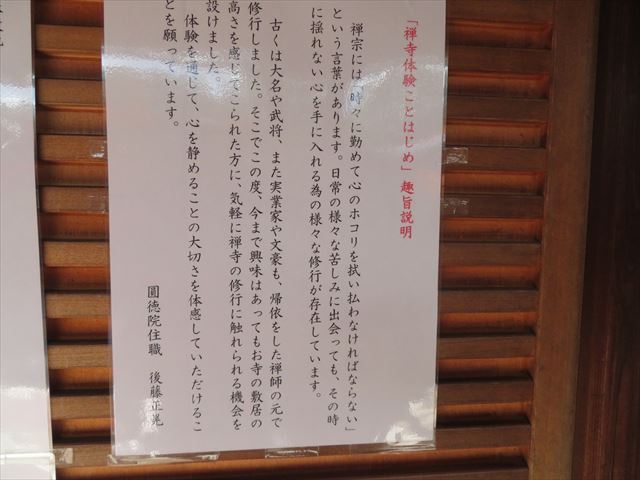 「禅寺体験ことはじめ」趣旨説明
禅宗には「時々に勤めて心のホコリを拭い払わなければならない」
という言葉があります。日常の様々な苦しみに出会っても、その時
に揺れない心を手に入れる為の様々な修行が存在しています。
古くは大名や武将、また実業家や文豪も、帰依をした禅師の元で
修行しました。そこでこの度、今まで興味はあってもお寺の敷居の
高さを感じてこられた方に、気軽に禅寺の修行に触れられる機会を
設けました。
体験を通じて、心を静めることの大切さを体感していただけるこ
とを願っています。
圓徳院住職 後藤正晃